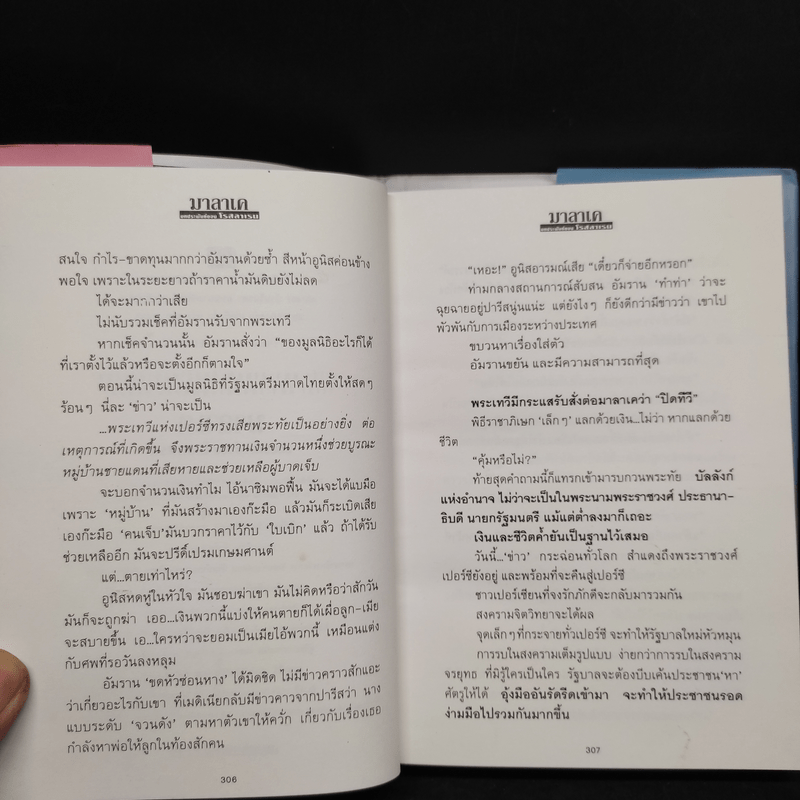 มาลาเค
โรสลาเรน
สนใจ กำไร-ขาดทุนมากกว่าอัมรานด้วยซ้ำ สีหน้าอูนิสค่อนข้าง
พอใจ เพราะในระยะยาวถ้าราคาน้ำมันดิบยังไม่ลด
ได้จะมากกว่าเสีย
ไม่นับรวมเช็คที่อัมรานรับจากพระเทวี
หากเช็คจำนวนนั้น อัมรานสั่งว่า “ของมูลนิธิอะไรก็ได้
ที่เราตั้งไว้แล้วหรือจะตั้งอีกก็ตามใจ”
ตอนนี้น่าจะเป็นมูลนิธิที่รัฐมนตรีมหาดไทยตั้งให้สดๆ
ร้อนๆ นี่ละ ‘ข่าว’ น่าจะเป็น
...พระเทวีแห่งเปอร์ซีทรงเสียพระทัยเป็นอย่างยิ่ง ต่อ
เหตุการณ์ที่เกิดขึ้น จึงพระราชทานเงินจำนวนหนึ่งช่วยบูรณะ
หมู่บ้านชายแดนที่เสียหายและช่วยเหลือผู้บาดเจ็บ
จะบอกจำนวนเงินทำไม ไอ้นาซิมพอฟื้น มันจะได้แบมือ
เพราะ ‘หมู่บ้าน’ ที่มันสร้างมาเองก๊ะมือ แล้วมันก็ระเบิดเสีย
เองก๊ะมือ ‘คนเจ็บ’มันบวกราคาไว้กับ ‘ใบเบิก’ แล้ว ถ้าได้รับ
ช่วยเหลืออีก มันจะปรีดิ์เปรมเกษมศานต์
แต่...ตายเท่าไหร่?
อูนิสหดหู่ในหัวใจ มันชอบฆ่าเขา มันไม่คิดหรือว่าสักวัน
มันก็จะถูกฆ่า เออ...เงินพวกนี้แบ่งให้คนตายก็ได้เผื่อลูก-เมีย
จะสบายขึ้น เอ...ใครหว่าจะยอมเป็นเมียไอ้พวกนี้ เหมือนแต่ง
กับศพที่รอวันลงหลุม
อัมราน ‘ขดหัวซ่อนหาง’ ได้มิดชิด ไม่มีข่าวคราวสักแอะ
ว่าเกี่ยวอะไรกับเขา ที่เมดิเนียกลับมีข่าวคาวจากปารีสว่า นาง
แบบระดับ ‘จวนดัง’ ตามหาตัวเขาให้ควั่ก เกี่ยวกับเรื่องเธอ
กำลังหาพ่อให้ลูกในท้องสักคน
306
มาลาเค
โรสลาเรน
“เหอะ!” อูนิสอารมณ์เสีย “เดี๋ยวก็จ่ายอีกหรอก”
ท่ามกลางสถานการณ์สับสน อัมราน ‘ทำท่า’ ว่าจะ
ฉุยฉายอยู่ปารีสนู่นแน่ะ แต่ยังไงๆ ก็ยังดีกว่ามีข่าวว่า เขาไป
พัวพันกับการเมืองระหว่างประเทศ
ขบวนหาเรื่องใส่ตัว
อัมรานขยัน และมีความสามารถที่สุด
พระเทวีมีกระแสรับสั่งต่อมาลาเคว่า “ปิดทีวี”
พิธีราชาภิเษก ‘เล็กๆ’ แลกด้วยเงิน...ไม่ว่า หากแลกด้วย
ชีวิต
“คุ้มหรือไม่?”
ท้ายสุดคำถามนี้ก็แทรกเข้ามารบกวนพระทัย บัลลังก์
แห่งอำนาจ ไม่ว่าจะเป็นในพระนามพระราชวงศ์ ประธานา-
ธิบดี นายกรัฐมนตรี แม้แต่ต่ำลงมาก็เถอะ
เงินและชีวิตค้ำยันเป็นฐานไว้เสมอ
วันนี้...‘ข่าว’ กระฉ่อนทั่วโลก สำแดงถึงพระราชวงศ์
เปอร์ซียังอยู่ และพร้อมที่จะคืนสู่เปอร์ซี
ชาวเปอร์เซียนที่จงรักภักดีจะกลับมารวมกัน
สงครามจิตวิทยาจะได้ผล
จุดเล็กๆที่กระจายทั่วเปอร์ซี จะทำให้รัฐบาลใหม่หัวหมุน
การรบในสงครามเต็มรูปแบบ ง่ายกว่าการรบในสงคราม
จรยุทธ ที่มิรู้ใครเป็นใคร รัฐบาลจะต้องบีบเค้นประชาชน‘หา’
ศัตรูให้ได้ อุ้งมืออันรัดรึดเข้ามา จะทำให้ประชาชนรอด
ง่ามมือไปรวมกันมากขึ้น
307